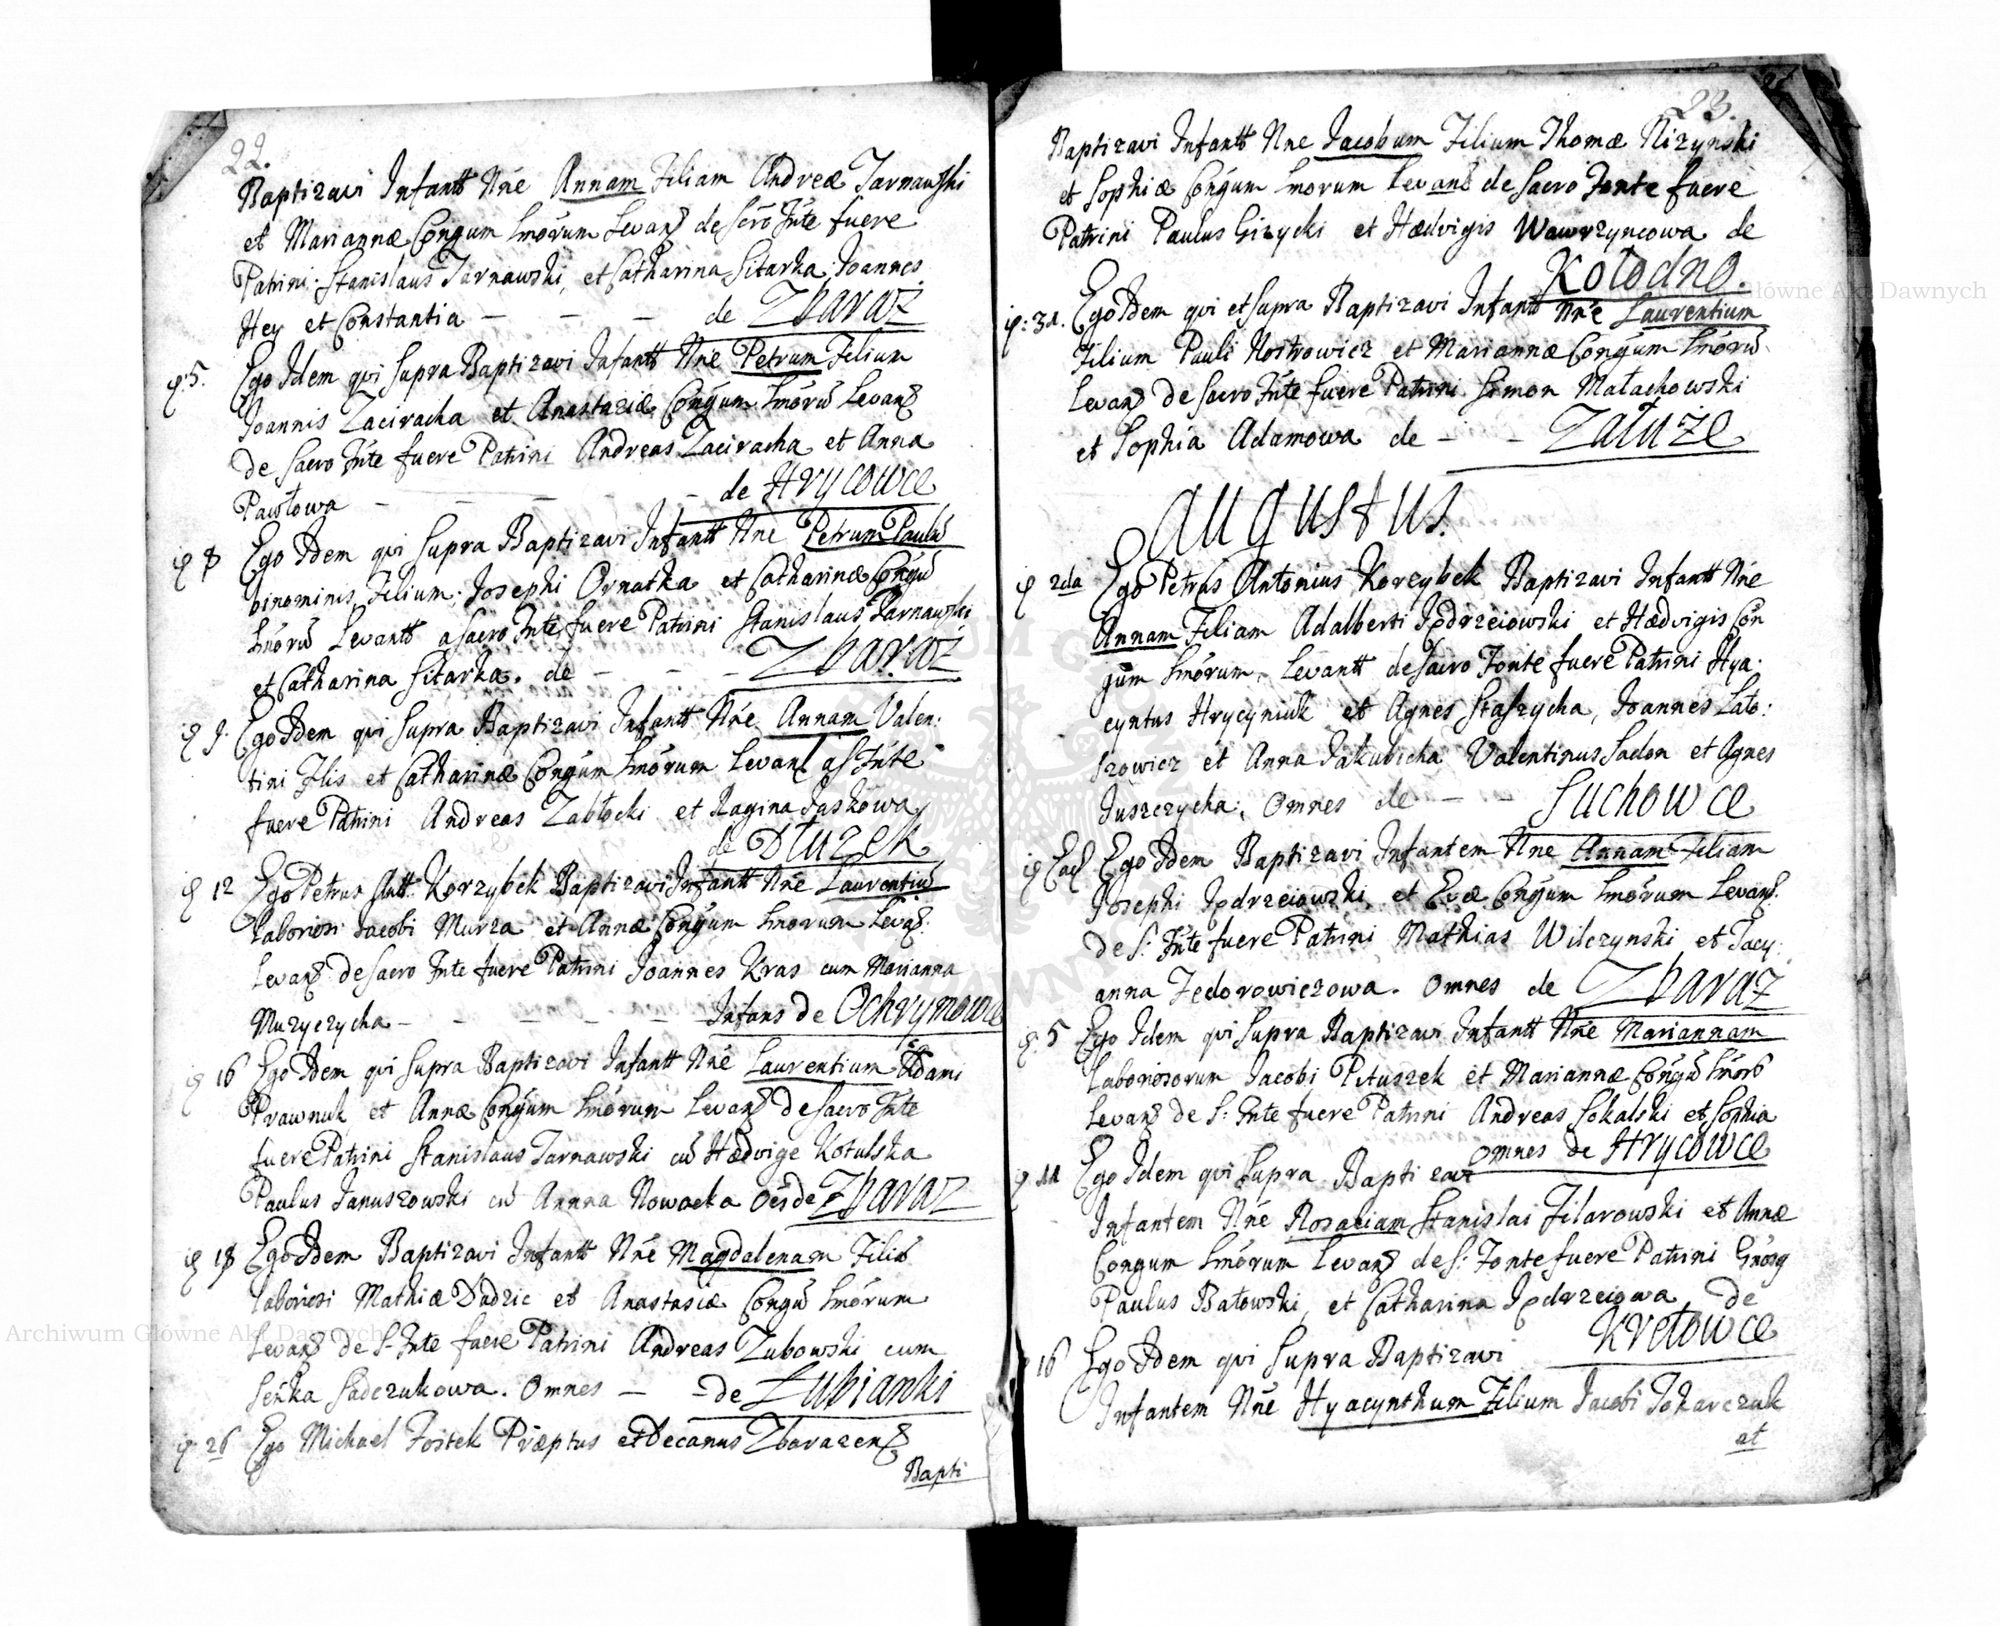 22.
Baptizavi Infantt Nne Annam Filiam Andreæ Tarnawski
et Mariannæ Congum Lmorum Levan de Scro Fnte fuere
Patrini Stanislaus Tarnawski, et Catharina Sitarka, Joannes
Hey et Constantia — — — de Zbaraz
5. Ego Idem qui Supra Baptizavi Infantt Nne Petrum Filium
Joannis Zaciracha et Anastaziæ Congum Lmoru Levan
de Sacro Fnte fuere Patrini Andreas Zaciracha et Anna
Pawłowa — — — — de Hrycowce
8 Ego Idem qui Supra Baptizavi Infantt Nne Petrum Paulu
binominis Filium Josephi Ornatka et Catharinæ Congu
Lmoru Levantt a Sacro Fnte fuere Patrini Stanislaus Tarnawski
et Catharina Sitarka. de — — — Zbaraz
9. Ego Idem qui Supra Baptizavi Infantt Nne Annam Valen:
tini Ilis et Catharinæ Congum Lmorum Levan a S Fnte
fuere Patrini Andreas Zabłocki et Ragina Jaskowa
de Dłuzek
12 Ego Petrus Antt. Korzybek Baptizavi Infantt Nne Laurentiu
Laboriosi Jacobi Murza et Annæ Congum Lmorum Levan:
Levan de Sacro Fnte fuere Patrini Joannes Kras cum Marianna
Muzyczycha — — — — Infans de Ochrymowce
16 Ego Idem qui Supra Baptizavi Infantt Nne Laurentium Adami
Prawnuk et Annæ Congum Lmorum Levan de Sacro Fnte
fuere Patrini Stanislaus Tarnawski cu Hædvige Kotulska
Paulus Januszowski cu Annna Nowacka Oes de Zbaraz
18 Ego Idem Baptizavi Infantt Nne Magdalenam Filia
Laboriosi Mathiæ Dudzic et Anastasiæ Congu Lmorum
Levan de S. Fnte fuere Patrini Andreas Zubowski cum
Senka Sadczukowa. Omnes — — de Łubianki
26 Ego Michael Fostek Præptus et Decanus Zbarazen
Bapti
23.
Baptizavi Infantt Nne Jacobum Filium Thomæ Nizynski
et Sophiæ Congum Lmorum Levan de Sacro Fonte fuere
Patrini Paulus Gizycki et Hædvigis Wawrzyncowa de
Kołodno.
31. Ego Idem qui et Supra Baptizavi Infantt Nne Laurentium
Filium Pauli Nostrowicz et Mariannæ Congum Lmoru
Levan de Sacro Fnte fuere Patrini Simon Małachowski
et Sophia Adamowa de — — Załuże
Augustus.
2da Ego Petrus Antonius Korcybek Baptizavi Infantt Nne
Annam Filiam Adalberti Jędrzeiowski et Hædvigis Con
gum Lmorum, Levantt de Sacro Fonte fuere Patrini Hya:
cyntus Hrycyniuk et Agnes Staszycha, Joannes Lato:
szowicz et Anna Jakubicha Valentinus Sadon et Agnes
Juszczycha, Omnes de — — Suchowce
Ead Ego Idem Baptizavi Infantem Nne Annam Filiam
Josephi Jędrzeiowski, et Evæ Congum Lmorum Levan
de S. Fnte fuere Patrini Mathias Wilczynski et Tacy:
anna Fedorowiczowa. Omnes de Zbaraz
5 Ego Idem qui Supra Baptizavi Infantt Nne Mariannam
Laboriosorum Jacobi Pituszek et Mariannæ Congu Lmoru
Levan de S: Fnte fuere Patrini Andreas Sokalski et Sophia
Omnes de Hrycowce
11 Ego Idem qui Supra Baptizavi
Infantem Nne Rosaliam Stanislai Filarowski et Annæ
Congum Lmorum Levan de S: Fonte fuere Patrini Gnosg
Paulus Batowski, et Catharina Jędrzeiowa de
Kretowce
16 Ego Idem qui Supra Baptizavi
Infantem Nne Hyacynthum Filium Jacobi Tokarczuk
at
Archiwum Główne Akt Dawnych
Archiwum Główne Akt Dawnych